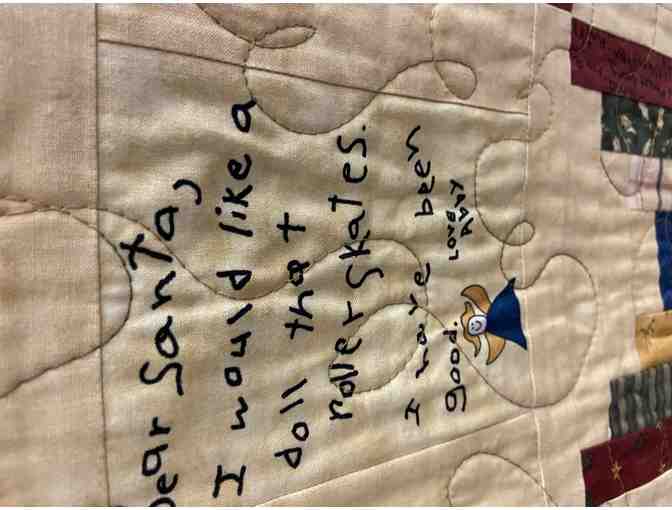 Dear Santa,
I would like a
doll that
roller skates.
I have been
good. Love
Avay